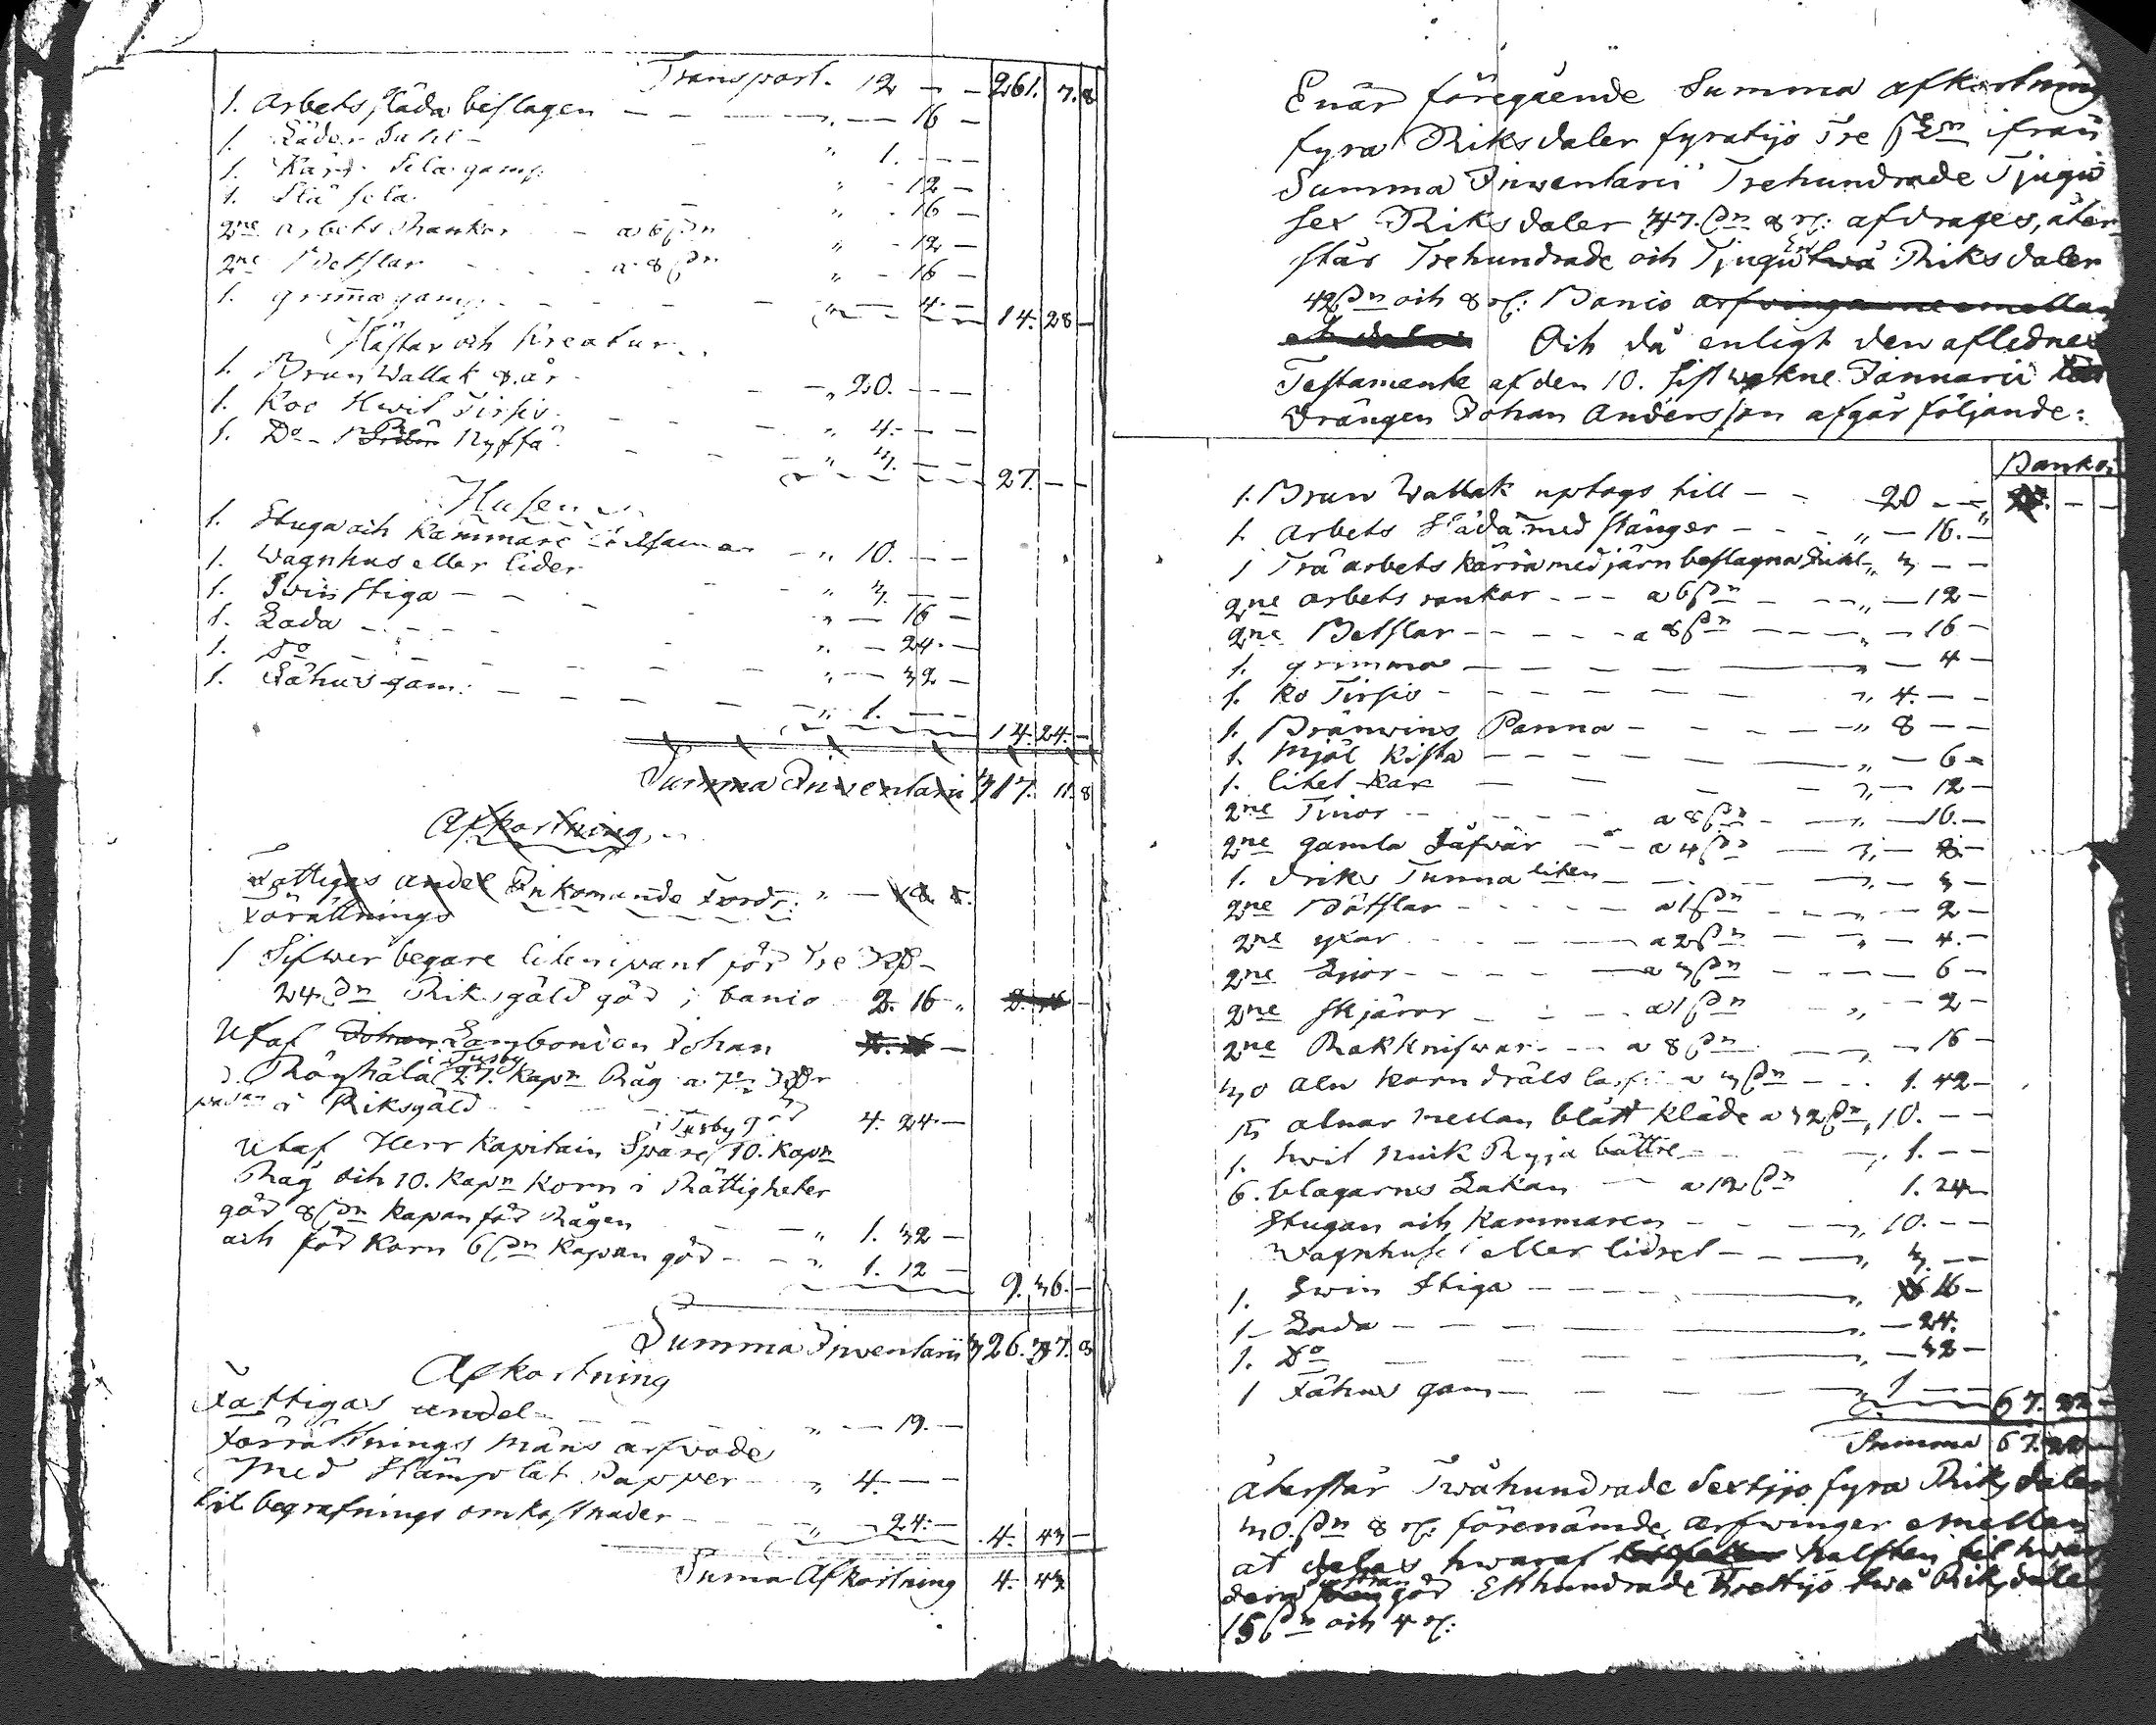 Transport. 12 — — 261. 7. 8
1. Arbets släda beslagen — — — „ — 16 —
1. Läder Suhl — — „ 1. — —
1. Kärr Sela gam: „ - 12 —
1. Slä sela „ - 16 —
2ne arbets Rankor — a 6 sn „ - 12 —
2ne Betslar - - - a 8 sn „ - 16 —
1. grimma gam: - - - „ — 4 — 14. 28 —
Hästar och kreatur
1. Brun Wallak 8. år - - „ 20. — —
1. Koo Hwit Tirsio - - „ 4. — —
1. Do - Nyssä - - „ 3. — —
27. — —
Husen
1. Stuga och Kammare — „ 10. — —
1. Wagnhus eller lider - „ 3. — —
1. Swin stiga — - - „ — 16 —
1. Lada - - - „ — 24. —
1. Do - - - „ — 32 —
1. Fähus gam: - - - „ 1. — —
14. 24. —
Summa Inventarii 317. 11. 8
Afkortning
Fattigas andel Inkomande Fordr: „ —
Förrättnings
1 Silwer begare liten i pant för Tre Rd
24 sn Riksgäld gör i banco 2. 16 „
Utaf Johan Lambonien Johan
i Tusby
Röyhälä 27. Kapn Råg a 7
i Riksgäld 4. 24. —
i Tusby gör
Utaf Herr Kapitain Spare 10. Kapn
Råg och 10. Kapn Korn i Rättigheter
gör 8 sn Kapan för Rågen — „ 1. 32 —
och för Korn 6 sn Kapan gör - - „ 1. 12 —
9. 36. —
Summa Inventarii 326. 47. 8
Afkortning
Fattigas andel - - - „ — 19. —
Förrättnings Mäns arfvode
Med Stämplat Papper - - „ 4. — —
til begrafnings omkostnader - - - „ - 24. — 4. 43 —
Suma Afkortning 4. 43
Enär föregående Summa afkortning
fyra Riksdaler fyratijo Tre sn ifrån
Summa Inwentarii Trehundrade Tjugu
sex Riksdaler 47. sn 8 r: afdrages, åter-
står Trehundrade och Tjugu två Riksdaler
42 sn och 8 r: Banco arfwingarne emellan
at delas Och då enligt den aflednes
Testamente af den 10. sistwekne Januarii
drängen Johan Andersson afgår följande:
Banko:
1. Brun Wallak uptogs till — - 20 — —
1. Arbets släda med stänger - - - „ — 16. —
1 Trä arbets kärra med järn beslagna Juhl - „ 3 — —
2ne arbets rankor - - - a 6 sn - - - „ — 12 —
2ne Betslar - - - - a 8 sn - - - „ — 16 —
1. grimma — — — „ — 4 —
1. Ko Tirsio - - - „ 4. — —
1. Bränwins Panna - - - - „ 8 — —
1. Mjöl Kista - - - „ — 6 —
1. litet Kar — — - „ — 12 —
2ne Tinor - - - a 8 sn - „ — 16. —
2ne gamla Såfvar - - a 4 sn - „ — 8. —
1. driks Tunna liten - - - „ — 3 —
2ne Båtslar - - - a 1 sn - - „ — 2 —
2ne yxar - - - a 2 sn - „ — 4. —
2ne Lijor - - - a 3 sn - - — 6 —
2ne Skjäror - - - a 1 sn „ — 2 —
2ne Rakknifwar - - a 8 sn - „ — 16 —
30 aln Korn dräls a 3 sn - - 1. 42 —
15 alnar mellan blått kläde a 32 sn „ 10. — —
1. hwit Ryja bättre - - - „ 1. — —
6. blagarns Lakan — a 12 sn 1. 24 —
Stugan och Kammaren - - - „ 10. — —
Wagnhuset eller lidret - - - „ 3. — —
1. Swin Stiga - - - „ 16 —
1 - Lada - - - „ — 24.
1. Do - - - „ — 32 —
1 Fähus gam — - - „ 1 — — 67. 22 —
Summa 67. 22 —
återstår Twåhundrade Sextijo fyra Riksdaler
30. sn 8 r: förenämde arfwingar emellan
at delas hwaraf halften til hwar-
dera gör Etthundrade Trettijo twå Riksdaler
15 sn och 4 r: